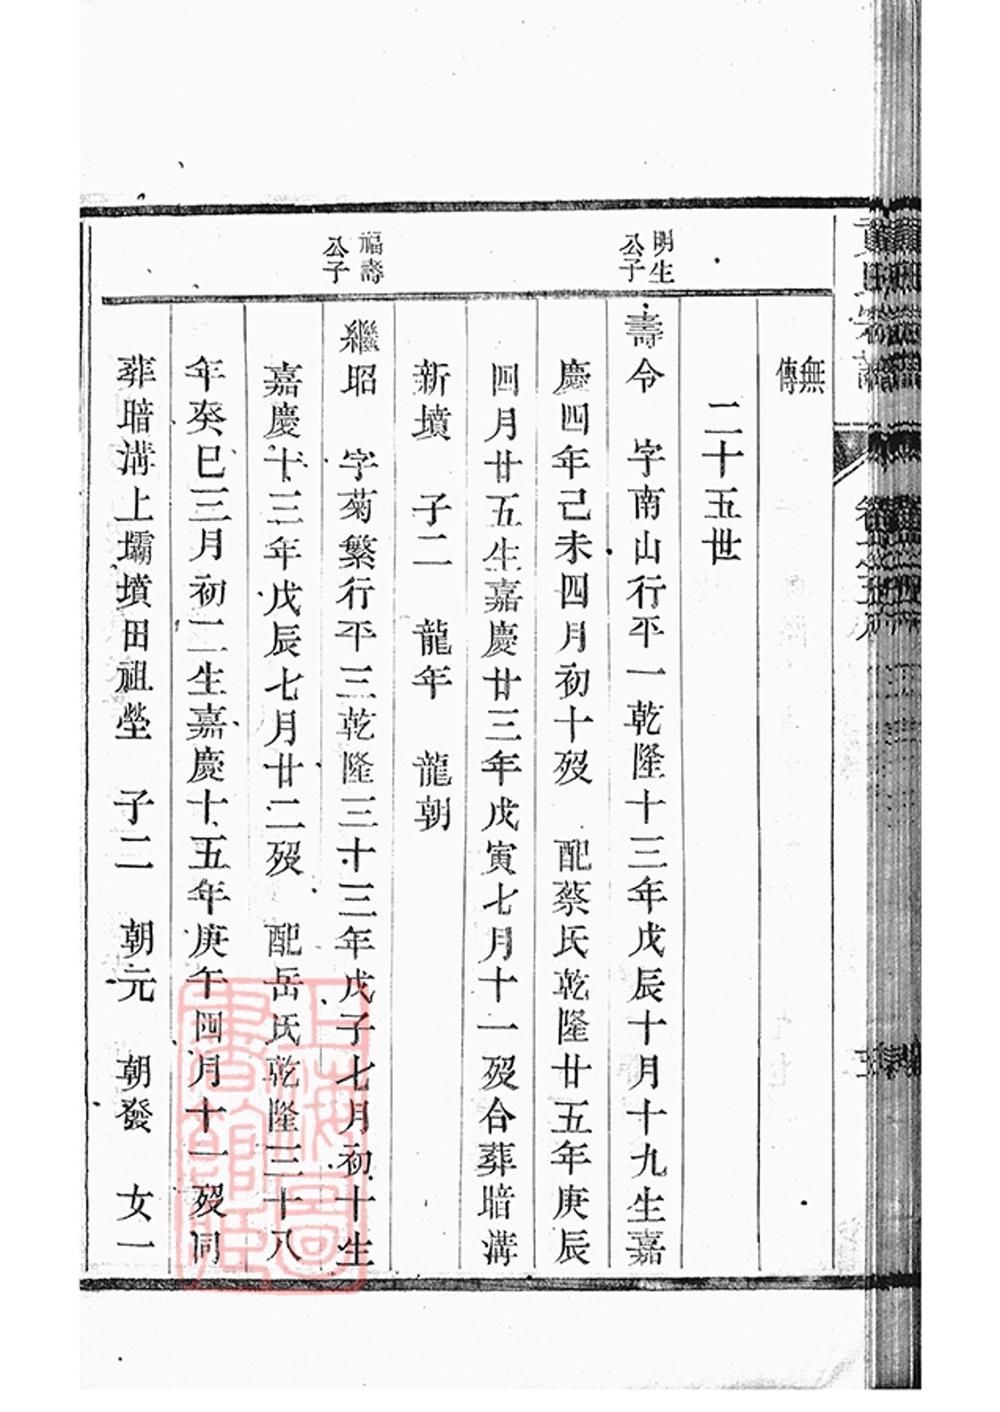 無傳
二十五世
明生公子
壽令　字南山行平一乾隆十三年戊辰十月十九生嘉
慶四年己未四月初十歿　配蔡氏乾隆廿五年庚辰
四月廿五生嘉慶廿三年戊寅七月十一歿合葬暗溝
新墳　子二　龍年　龍朝
福壽公子
繼昭　字菊繁行平三乾隆三十三年戊子七月初十生
嘉慶十三年戊辰七月廿二歿　配岳氏乾隆三十八
年癸巳三月初二生嘉慶十五年庚午四月十一歿同
葬暗溝上壩墳田祖塋　子二　朝元　朝發　女一
上海圖書館藏